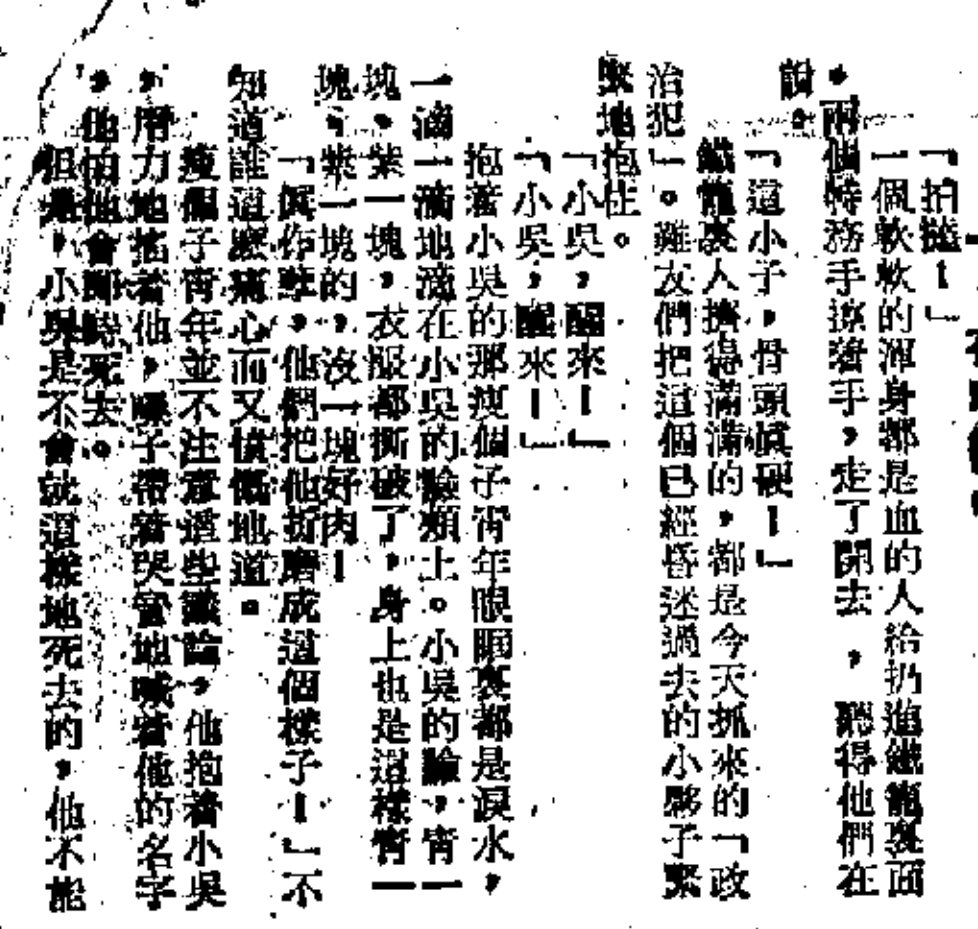 「拍撻！」
一個軟軟的渾身都是血的人給扔進鐵籠裏面
，兩個特務手撩著手，走了開去，聽得他們在
說。
「這小子，骨頭眞硬！」
鐵籠裏人擠得滿滿的，都是今天抓來的「政
治犯」。難友們把這個已經昏迷過去的小夥子緊
緊地抱住。
「小吳，醒來！」
「小吳，醒來！」
抱著小吳的那瘦個子靑年眼眶裏都是淚水，
一滴一滴地滴在小吳的臉頰上。小吳的臉，靑一
塊，紫一塊，衣服都撕破了，身上也是這樣靑一
塊，紫一塊的，沒一塊好肉！
「眞作孽，他們把他折磨成這個樣子！」不
知道誰這麽痛心而又憤慨地道。
瘦個子靑年並不注意這些議論，他抱着小吳
，用力地搖着他，嗓子帶着哭音地喊着他的名字
，他怕他會卽時死去。
但是，小吳是不會就這樣地死去的，他不能